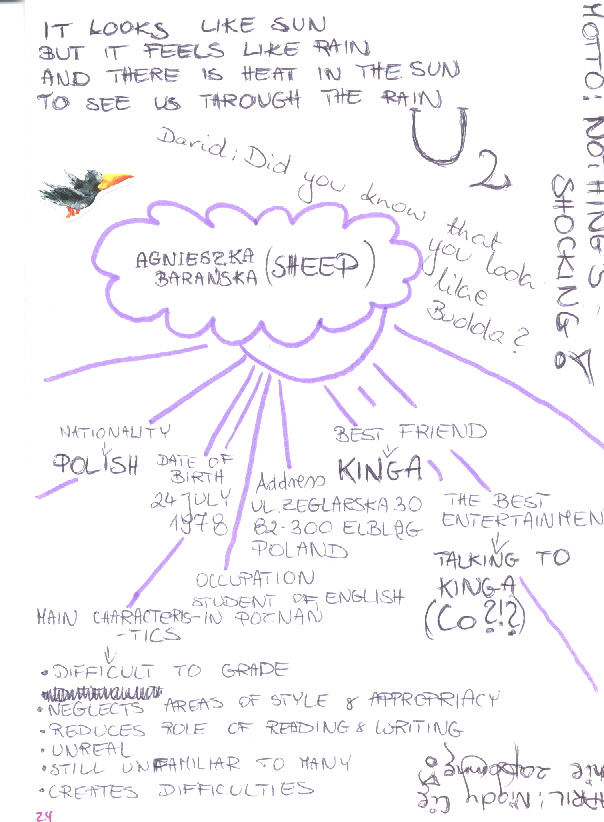 IT LOOKS LIKE SUN
BUT IT FEELS LIKE RAIN
AND THERE IS HEAT IN THE SUN
TO SEE US THROUGH THE RAIN
U2
MOTTO: NOTHING'S
SHOCKING!
David: Did you know that
you look
like
Budda?
AGNIESZKA
BARAŃSKA (SHEEP)
NATIONALITY
POLISH
DATE OF
BIRTH
24 JULY
1978
Address
UL. ŻEGLARSKA 30
82-300 ELBLĄG
POLAND
BEST FRIEND
KINGA
THE BEST
ENTERTAINMEN
TALKING TO
KINGA
(Co ?!?)
OCCUPATION
STUDENT OF ENGLISH
IN POZNAŃ
MAIN CHARACTERIS-
-TICS
• DIFFICULT TO GRADE
• NEGLECTS AREAS OF STYLE & APPROPRIACY
• REDUCES ROLE OF READING & WRITING
• UNREAL
• STILL UNFAMILIAR TO MANY
• CREATES DIFFICULTIES
ARIL: Nigdy Cię
nie zapomnę
24